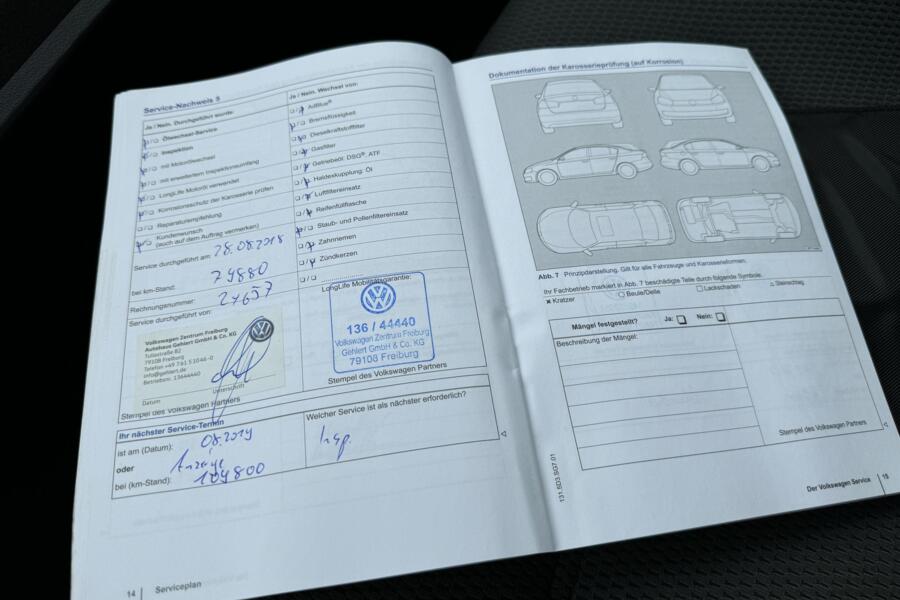 Service-Nachweis 5
Ja / Nein. Durchgeführt wurde:
Ölwechsel-Service
Inspektion
mit Motorölwechsel
mit erweitertem Inspektionsumfang
LongLife Motoröl verwendet
Korrosionsschutz der Karosserie prüfen
Reparaturempfehlung
Kundenwunsch
(auch auf dem Auftrag vermerken)
Service durchgeführt am: 28.08.2018
bei km-Stand: 79880
Rechnungsnummer: 27657
Service durchgeführt von:
Volkswagen Zentrum Freiburg
Autohaus Gehlert GmbH & Co. KG
Tullastraße 82
79108 Freiburg
Telefon +49 761 51046-0
info@gehlert.de
Betriebsnr. 13644440
Datum Unterschrift
Stempel des Volkswagen Partners
Ja / Nein. Wechsel von:
AdBlue®
Bremsflüssigkeit
Dieselkraftstofffilter
Gasfilter
Getriebeöl: DSG®, ATF
Haldexkupplung: Öl
Luftfiltereinsatz
Reifenfüllflasche
Staub- und Pollenfiltereinsatz
Zahnriemen
Zündkerzen
LongLife Mobilitätsgarantie:
136 / 44440
Volkswagen Zentrum Freiburg
Gehlert GmbH & Co. KG
79108 Freiburg
Stempel des Volkswagen Partners
Ihr nächster Service-Termin
ist am (Datum): 08.2019
oder Anzeige
bei (km-Stand): 109800
Welcher Service ist als nächster erforderlich?
Insp.
14 Serviceplan
Dokumentation der Karosserieprüfung (auf Korrosion)
Abb. 7 Prinzipdarstellung. Gilt für alle Fahrzeuge und Karosserieformen.
Ihr Fachbetrieb markiert in Abb. 7 beschädigte Teile durch folgende Symbole:
Kratzer Beule/Delle Lackschaden Steinschlag
Mängel festgestellt? Ja: Nein:
Beschreibung der Mängel:
Stempel des Volkswagen Partners
131.5D3.SG7.01
Der Volkswagen Service 15